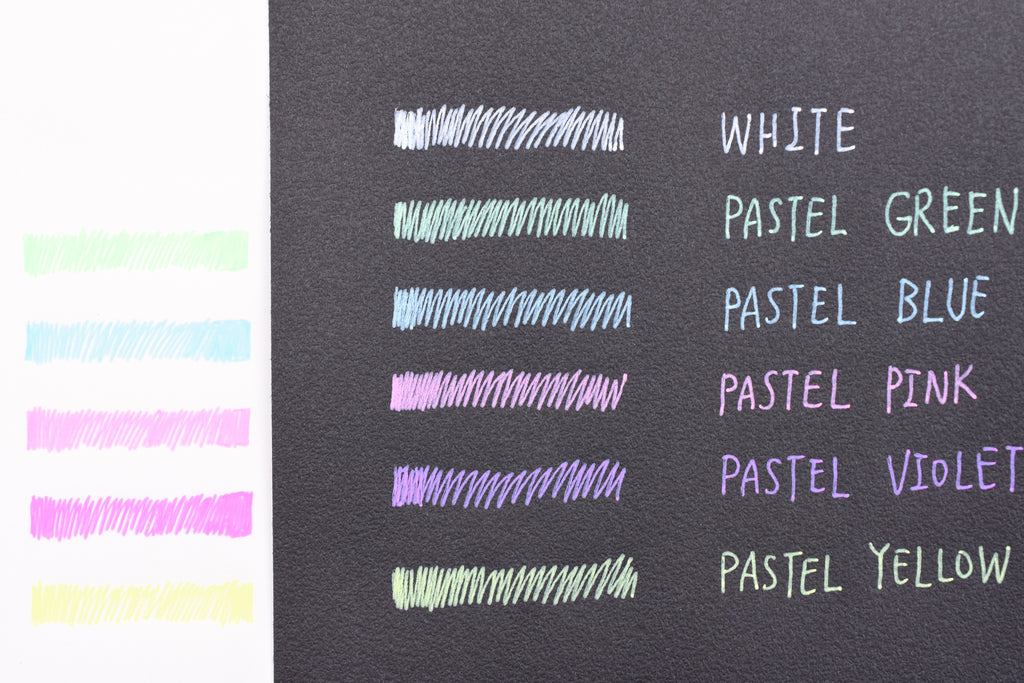 WHITE
PASTEL GREEN
PASTEL BLUE
PASTEL PINK
PASTEL VIOLET
PASTEL YELLOW